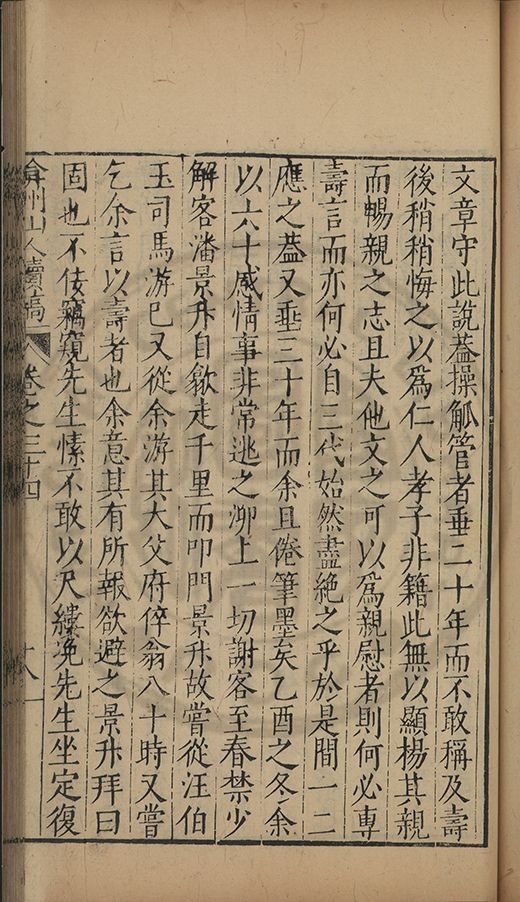 文章守此說葢操觚管者垂二十年而不敢稱及壽
後稍稍悔之以爲仁人孝子非籍此無以顯楊其親
而暢親之志且夫他文之可以爲親慰者則何必專
壽言而亦何必自三代始然盡絶之乎於是間一二
應之葢又垂三十年而余且倦筆墨矣乙酉之冬余
以六十感情事非常逃之泖上一切謝客至春禁少
解客潘景升自歙走千里而叩門景升故嘗從汪伯
玉司馬游巳又從余游其大父府倅翁八十時又嘗
乞余言以壽者也余意其有所報欲避之景升拜曰
固也不佞竊窺先生愫不敢以尺縷凂先生坐定復
弇州山人續稿 卷之三十四 十八